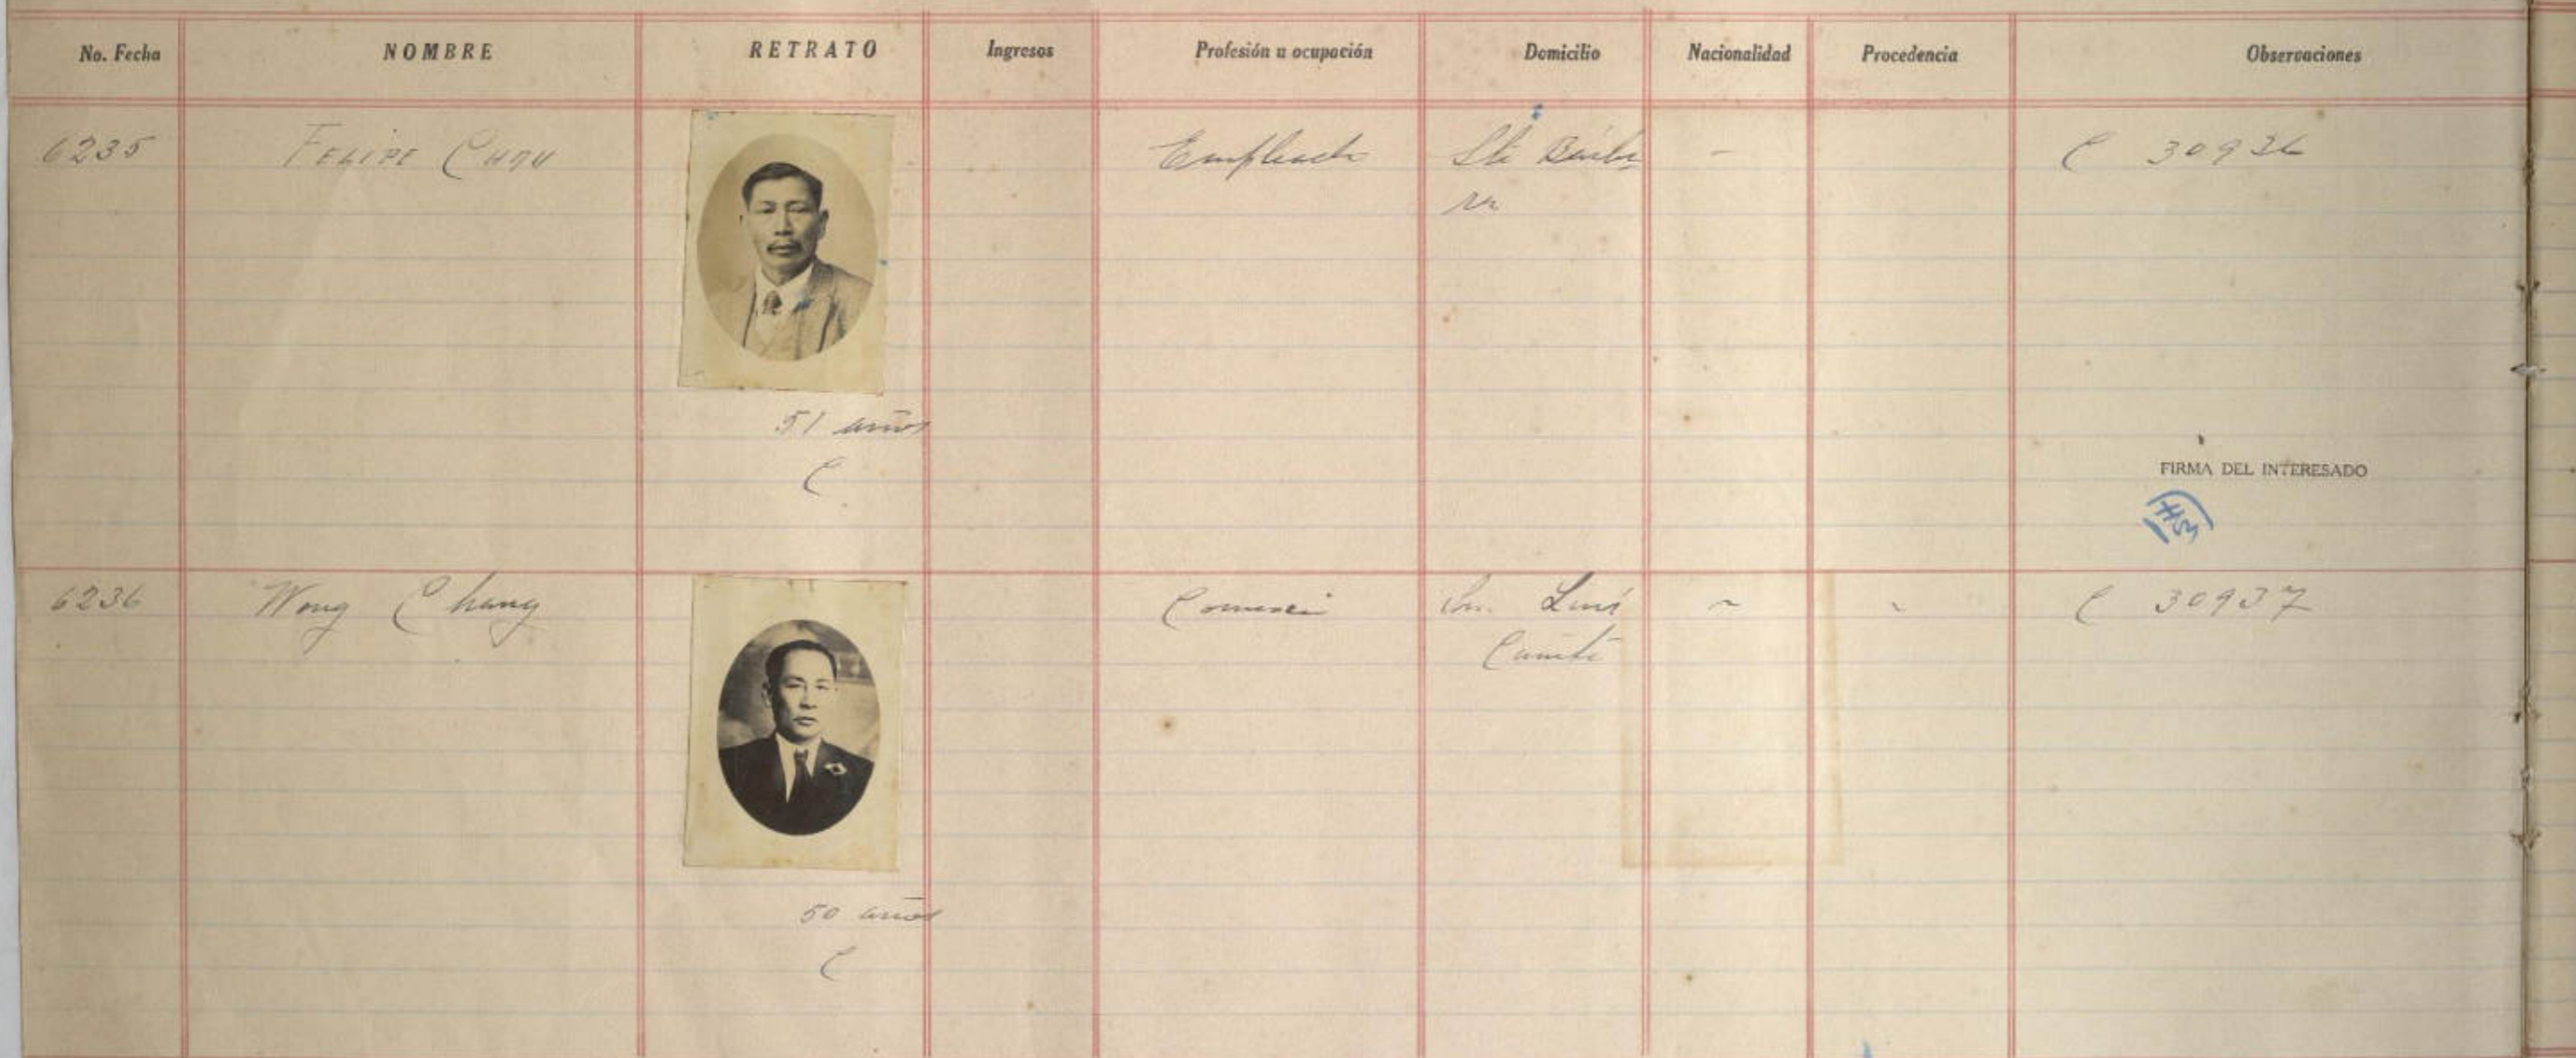 No. Fecha NOMBRE RETRATO Ingresos Profesión u ocupación Domicilio Nacionalidad Procedencia Observaciones
6235 FELIPE CHOU Empleado Sta Bárba- - C 30936
ra
51 años
C
FIRMA DEL INTERESADO
6236 Wong Chang Comerci Sn. Luis ~ - C 30937
50 años
C